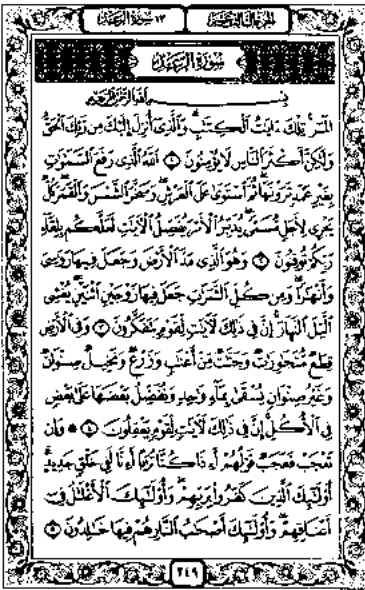 الجزء الثالث عشر ١٣ سورة الرعد
سورة الرعد
بسم الله الرحمن الرحيم
الٓمٓر تِلْكَ ءَايَٰتُ ٱلْكِتَٰبِ وَٱلَّذِىٓ أُنزِلَ إِلَيْكَ مِن رَّبِّكَ ٱلْحَقُّ
وَلَٰكِنَّ أَكْثَرَ ٱلنَّاسِ لَا يُؤْمِنُونَ ١ ٱللَّهُ ٱلَّذِى رَفَعَ ٱلسَّمَٰوَٰتِ
بِغَيْرِ عَمَدٍ تَرَوْنَهَا ثُمَّ ٱسْتَوَىٰ عَلَى ٱلْعَرْشِ وَسَخَّرَ ٱلشَّمْسَ وَٱلْقَمَرَ كُلٌّ
يَجْرِى لِأَجَلٍ مُّسَمًّى يُدَبِّرُ ٱلْأَمْرَ يُفَصِّلُ ٱلْءَايَٰتِ لَعَلَّكُم بِلِقَآءِ
رَبِّكُمْ تُوقِنُونَ ٢ وَهُوَ ٱلَّذِى مَدَّ ٱلْأَرْضَ وَجَعَلَ فِيهَا رَوَٰسِىَ
وَأَنْهَٰرًا وَمِن كُلِّ ٱلثَّمَرَٰتِ جَعَلَ فِيهَا زَوْجَيْنِ ٱثْنَيْنِ يُغْشِى
ٱلَّيْلَ ٱلنَّهَارَ إِنَّ فِى ذَٰلِكَ لَءَايَٰتٍ لِّقَوْمٍ يَتَفَكَّرُونَ ٣ وَفِى ٱلْأَرْضِ
قِطَعٌ مُّتَجَٰوِرَٰتٌ وَجَنَّٰتٌ مِّنْ أَعْنَٰبٍ وَزَرْعٌ وَنَخِيلٌ صِنْوَانٌ
وَغَيْرُ صِنْوَانٍ يُسْقَىٰ بِمَآءٍ وَٰحِدٍ وَنُفَضِّلُ بَعْضَهَا عَلَىٰ بَعْضٍ
فِى ٱلْأُكُلِ إِنَّ فِى ذَٰلِكَ لَءَايَٰتٍ لِّقَوْمٍ يَعْقِلُونَ ٤ ۞ وَإِن
تَعْجَبْ فَعَجَبٌ قَوْلُهُمْ أَءِذَا كُنَّا تُرَٰبًا أَءِنَّا لَفِى خَلْقٍ جَدِيدٍ
أُو۟لَٰٓئِكَ ٱلَّذِينَ كَفَرُوا۟ بِرَبِّهِمْ وَأُو۟لَٰٓئِكَ ٱلْأَغْلَٰلُ فِىٓ
أَعْنَاقِهِمْ وَأُو۟لَٰٓئِكَ أَصْحَٰبُ ٱلنَّارِ هُمْ فِيهَا خَٰلِدُونَ ٥
٢٤٩